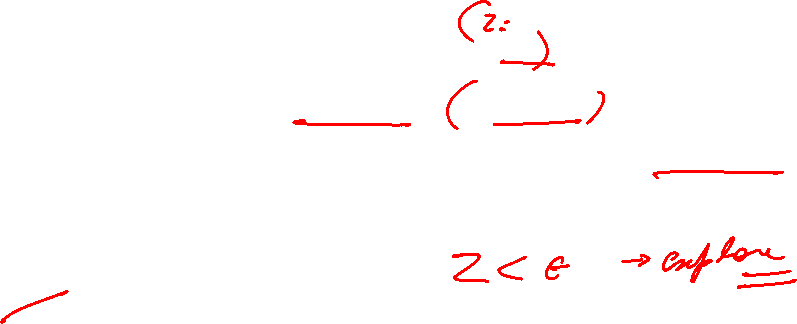 (2:
)
( )
Z < ε → explore